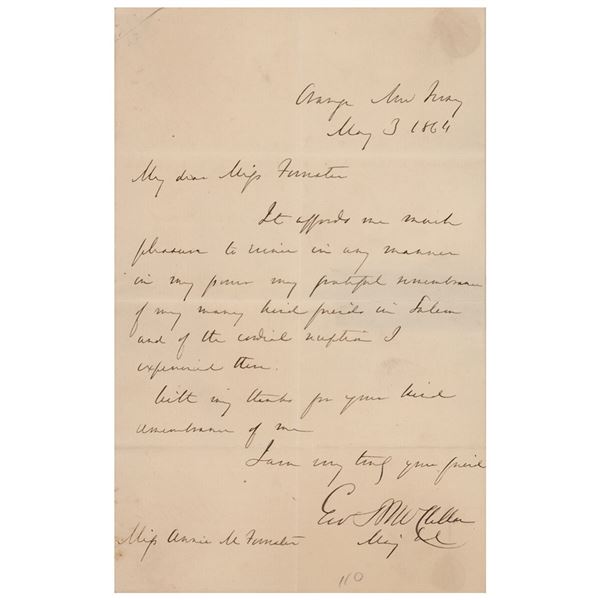 Orange New Jersey
May 3 1864
My dear Miss Forrester
It affords me much
pleasure to renew in any manner
in my power my grateful remembrance
of my many kind friends in Salem
and of the cordial reception I
experienced there.
With my thanks for your kind
remembrance of me
I am very truly your friend
Geo B McClellan
Maj Genl
Miss Annie M Forrester
110